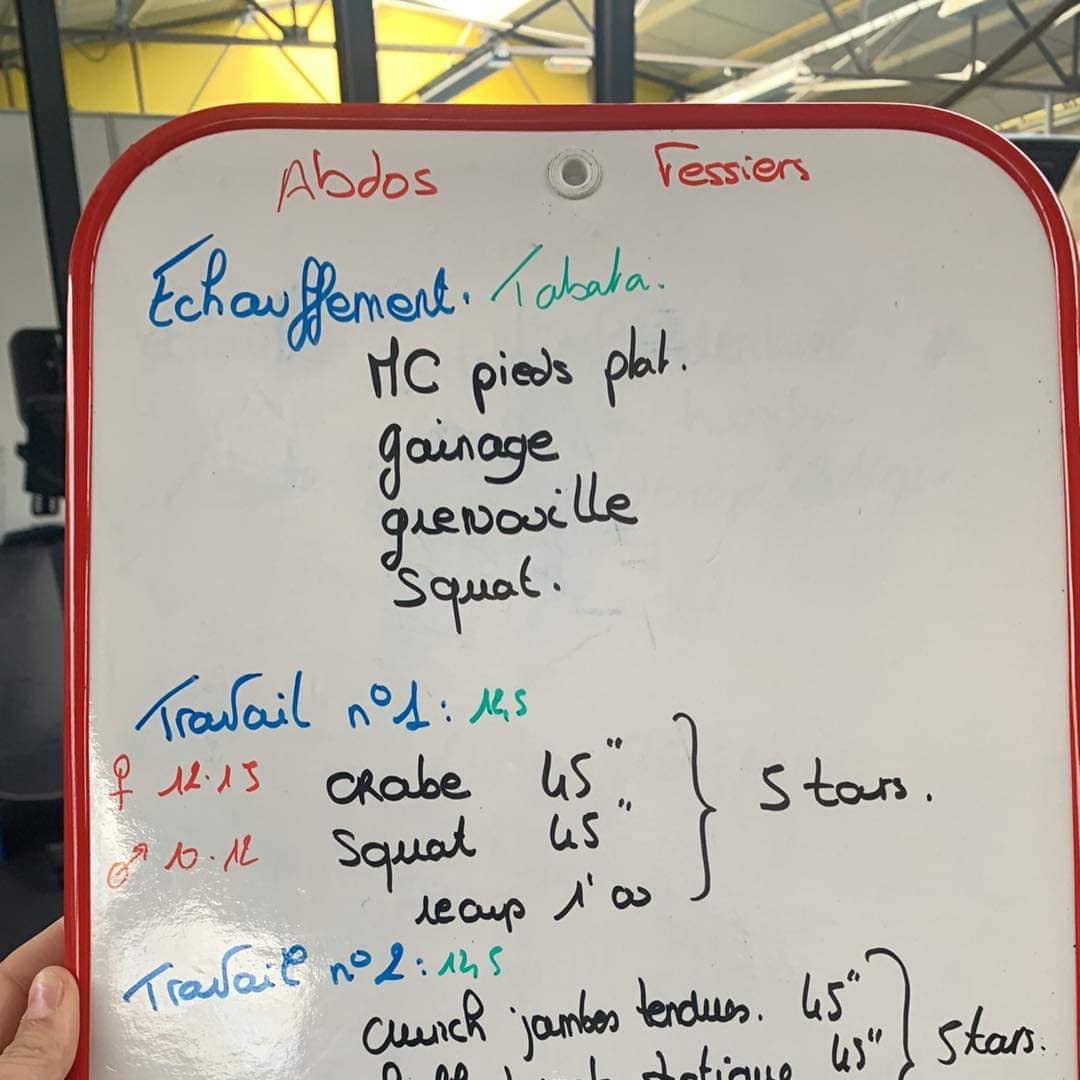 Abdos Fessiers
Echauffement. Tabata.
MC pieds plat.
gainage
grenouille
squat.
Travail n°1: 12,5
♀ 12.15 crabe 45"
♂ 10.12 Squat 45" } 5 tours.
recup 1'00
Travail n°2: 12,5
jambes tendues. 45"
statique 45" } 5 tours.